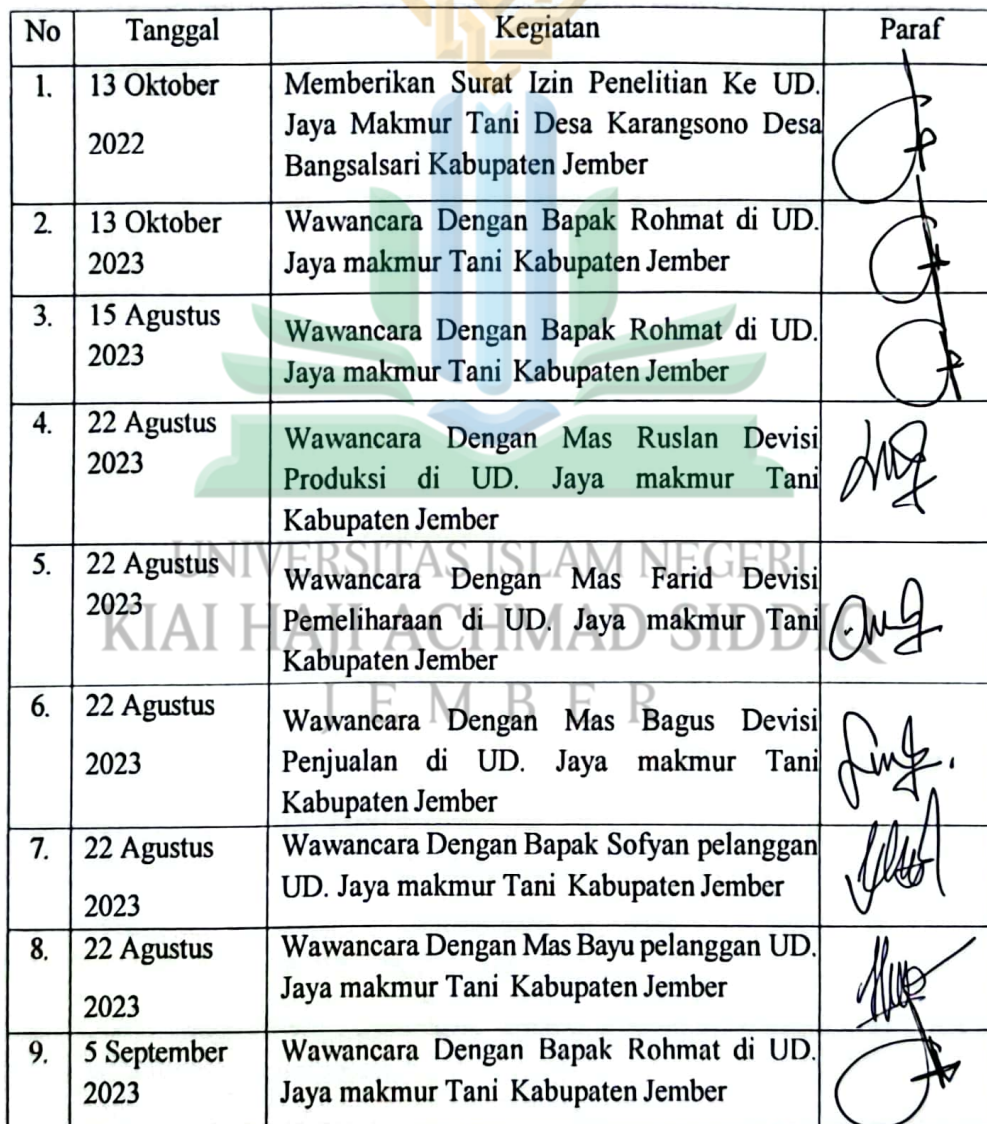 No Tanggal Kegiatan Paraf
1. 13 Oktober
2022
Memberikan Surat Izin Penelitian Ke UD.
Jaya Makmur Tani Desa Karangsono Desa
Bangsalsari Kabupaten Jember
2. 13 Oktober
2023
Wawancara Dengan Bapak Rohmat di UD.
Jaya makmur Tani Kabupaten Jember
3. 15 Agustus
2023
Wawancara Dengan Bapak Rohmat di UD.
Jaya makmur Tani Kabupaten Jember
4. 22 Agustus
2023
Wawancara Dengan Mas Ruslan Devisi
Produksi di UD. Jaya makmur Tani
Kabupaten Jember
5. 22 Agustus
2023
Wawancara Dengan Mas Farid Devisi
Pemeliharaan di UD. Jaya makmur Tani
Kabupaten Jember
6. 22 Agustus
2023
Wawancara Dengan Mas Bagus Devisi
Penjualan di UD. Jaya makmur Tani
Kabupaten Jember
7. 22 Agustus
2023
Wawancara Dengan Bapak Sofyan pelanggan
UD. Jaya makmur Tani Kabupaten Jember
8. 22 Agustus
2023
Wawancara Dengan Mas Bayu pelanggan UD.
Jaya makmur Tani Kabupaten Jember
9. 5 September
2023
Wawancara Dengan Bapak Rohmat di UD.
Jaya makmur Tani Kabupaten Jember
UNIVERSITAS ISLAM NEGERI
KIAI HAJI ACHMAD SIDDIQ
JEMBER